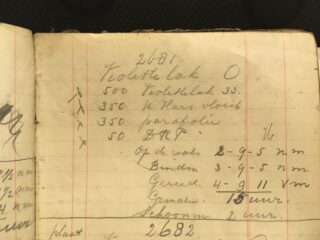 2681
Violetlak O
500 Violetlak 33.
350 H Hars vloeib
350 paraxolie
50 D.R.P.
Op de wals 2-9-5 n m
Binden 3-9-5 n m
Gereed 4-9 11 V m
Gemalen 15 uur.
Schoonm 2 uur.
2682
plaat
½ nm
½ nm
nm
uur